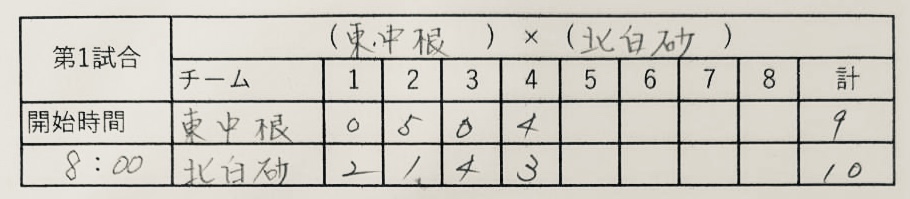 第1試合 (東中根) × (北白砂)
チーム 1 2 3 4 5 6 7 8 計
開始時間 東中根 0 5 0 4 9
8:00 北白砂 2 1 4 3 10